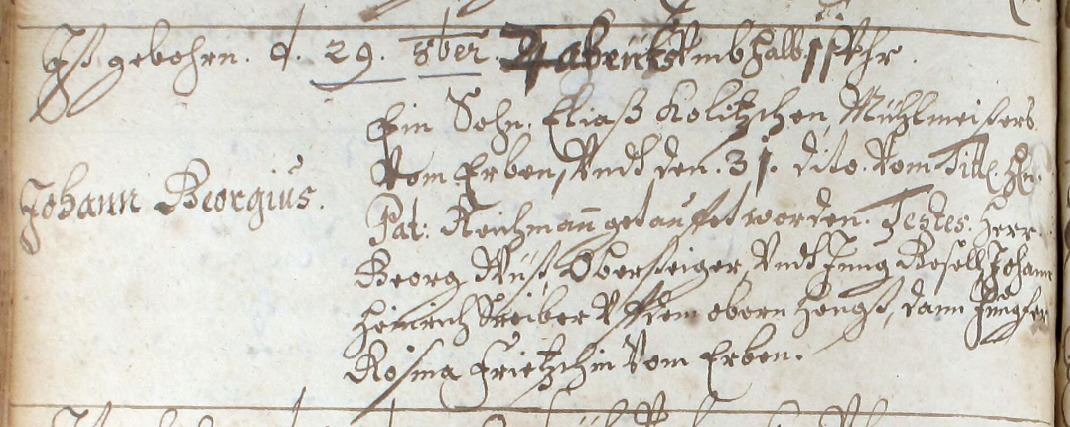 Ist gebohren. d. 29. 8ber abents umb halb 11 Uhr.
Ein Sohn. Eliaß Kolitzschen, Mühlmeisters
Vom Erben, Undt den. 31. dito. Vom Titl. Hn.
Johann Georgius.
Pat: Reichmañ getauffet worden. Testes. Herr
Georg Obersteiger, Undt Jung Gesell, Johann
Heinrich Vff dem obern Hengst, dann Jungfer
Rosina Frietzschin Vom Erben.